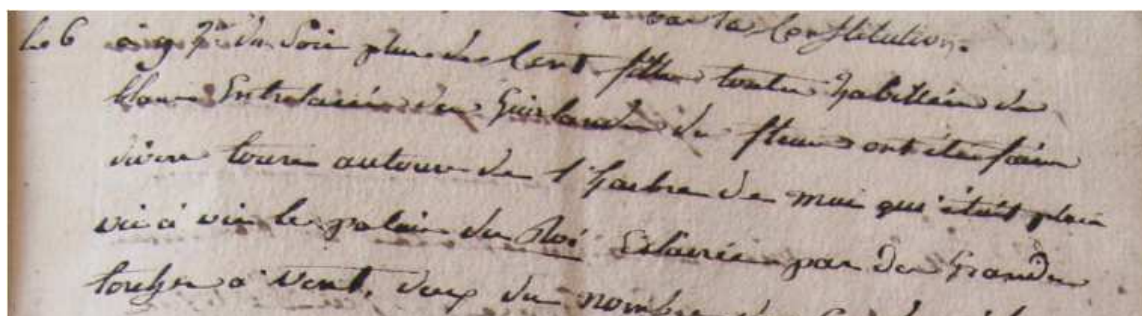 par la Constitution.
le 6 à 9 h. du Soir plus de Cent filles toutes habillées de
blanc Entrelacées de Guirlande de fleurs ont été faire
divers tours autour de l'harbre de mai qui était placé
vis à vis le palais du Roi Eclairées par de Grandes
torches à Vent, deux du nombre